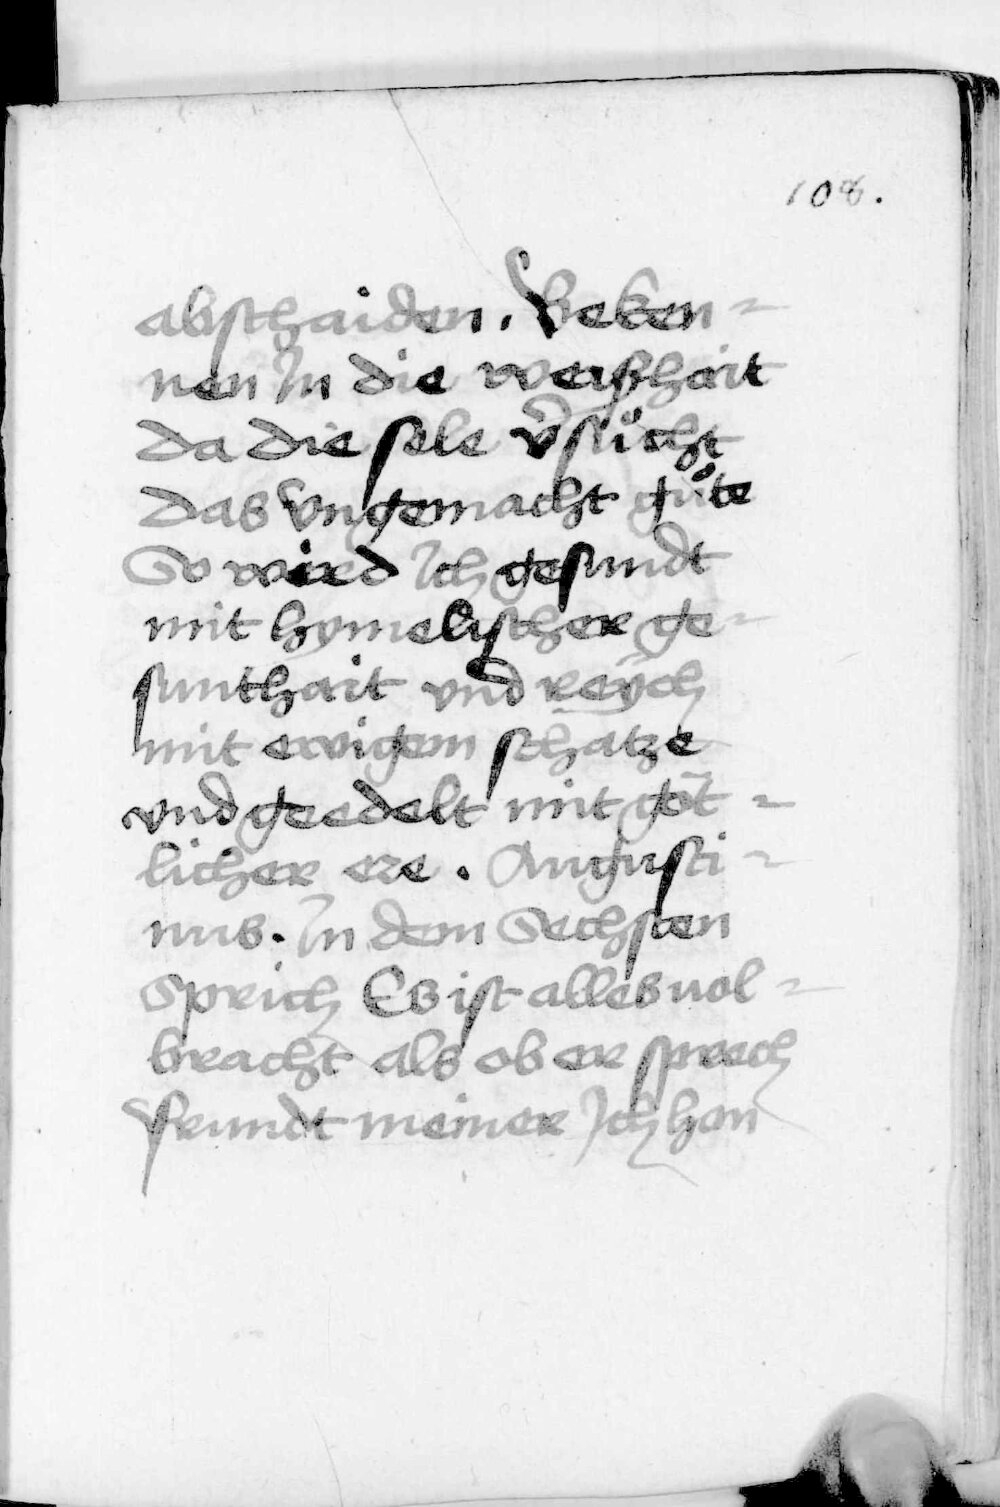 108.
abschaiden. Beken=
nen In die weißhait
da die sele v̄sücht
das vngemacht gůte
So wird Ich gesundt
mit hymelischer ge=
sunthait vnd reÿch
mit ewigem schatze
vnd geedelt mit göt=
licher ere. Augusti=
nus. In dem Sechsten
Sprich Es ist alles uol=
bracht als ob er sprech
frundt meiner Ich hon